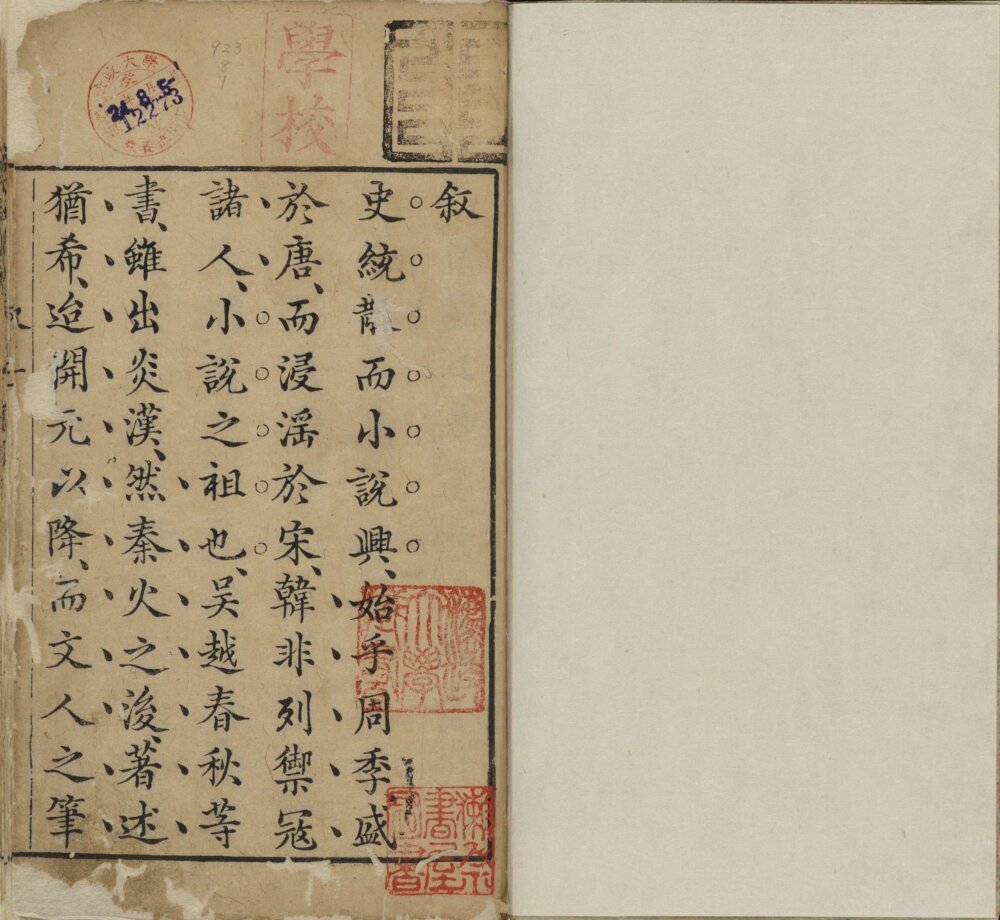 叙
史統散而小說興、始乎周季盛
於唐、而浸淫於宋、韓非列禦寇
諸人、小說之祖也、吳越春秋等
書、雖出炎漢、然秦火之後、著述
猶希、迨開元以降、而文人之筆
學校
法政大學
24.8.5
12273
923
8
1